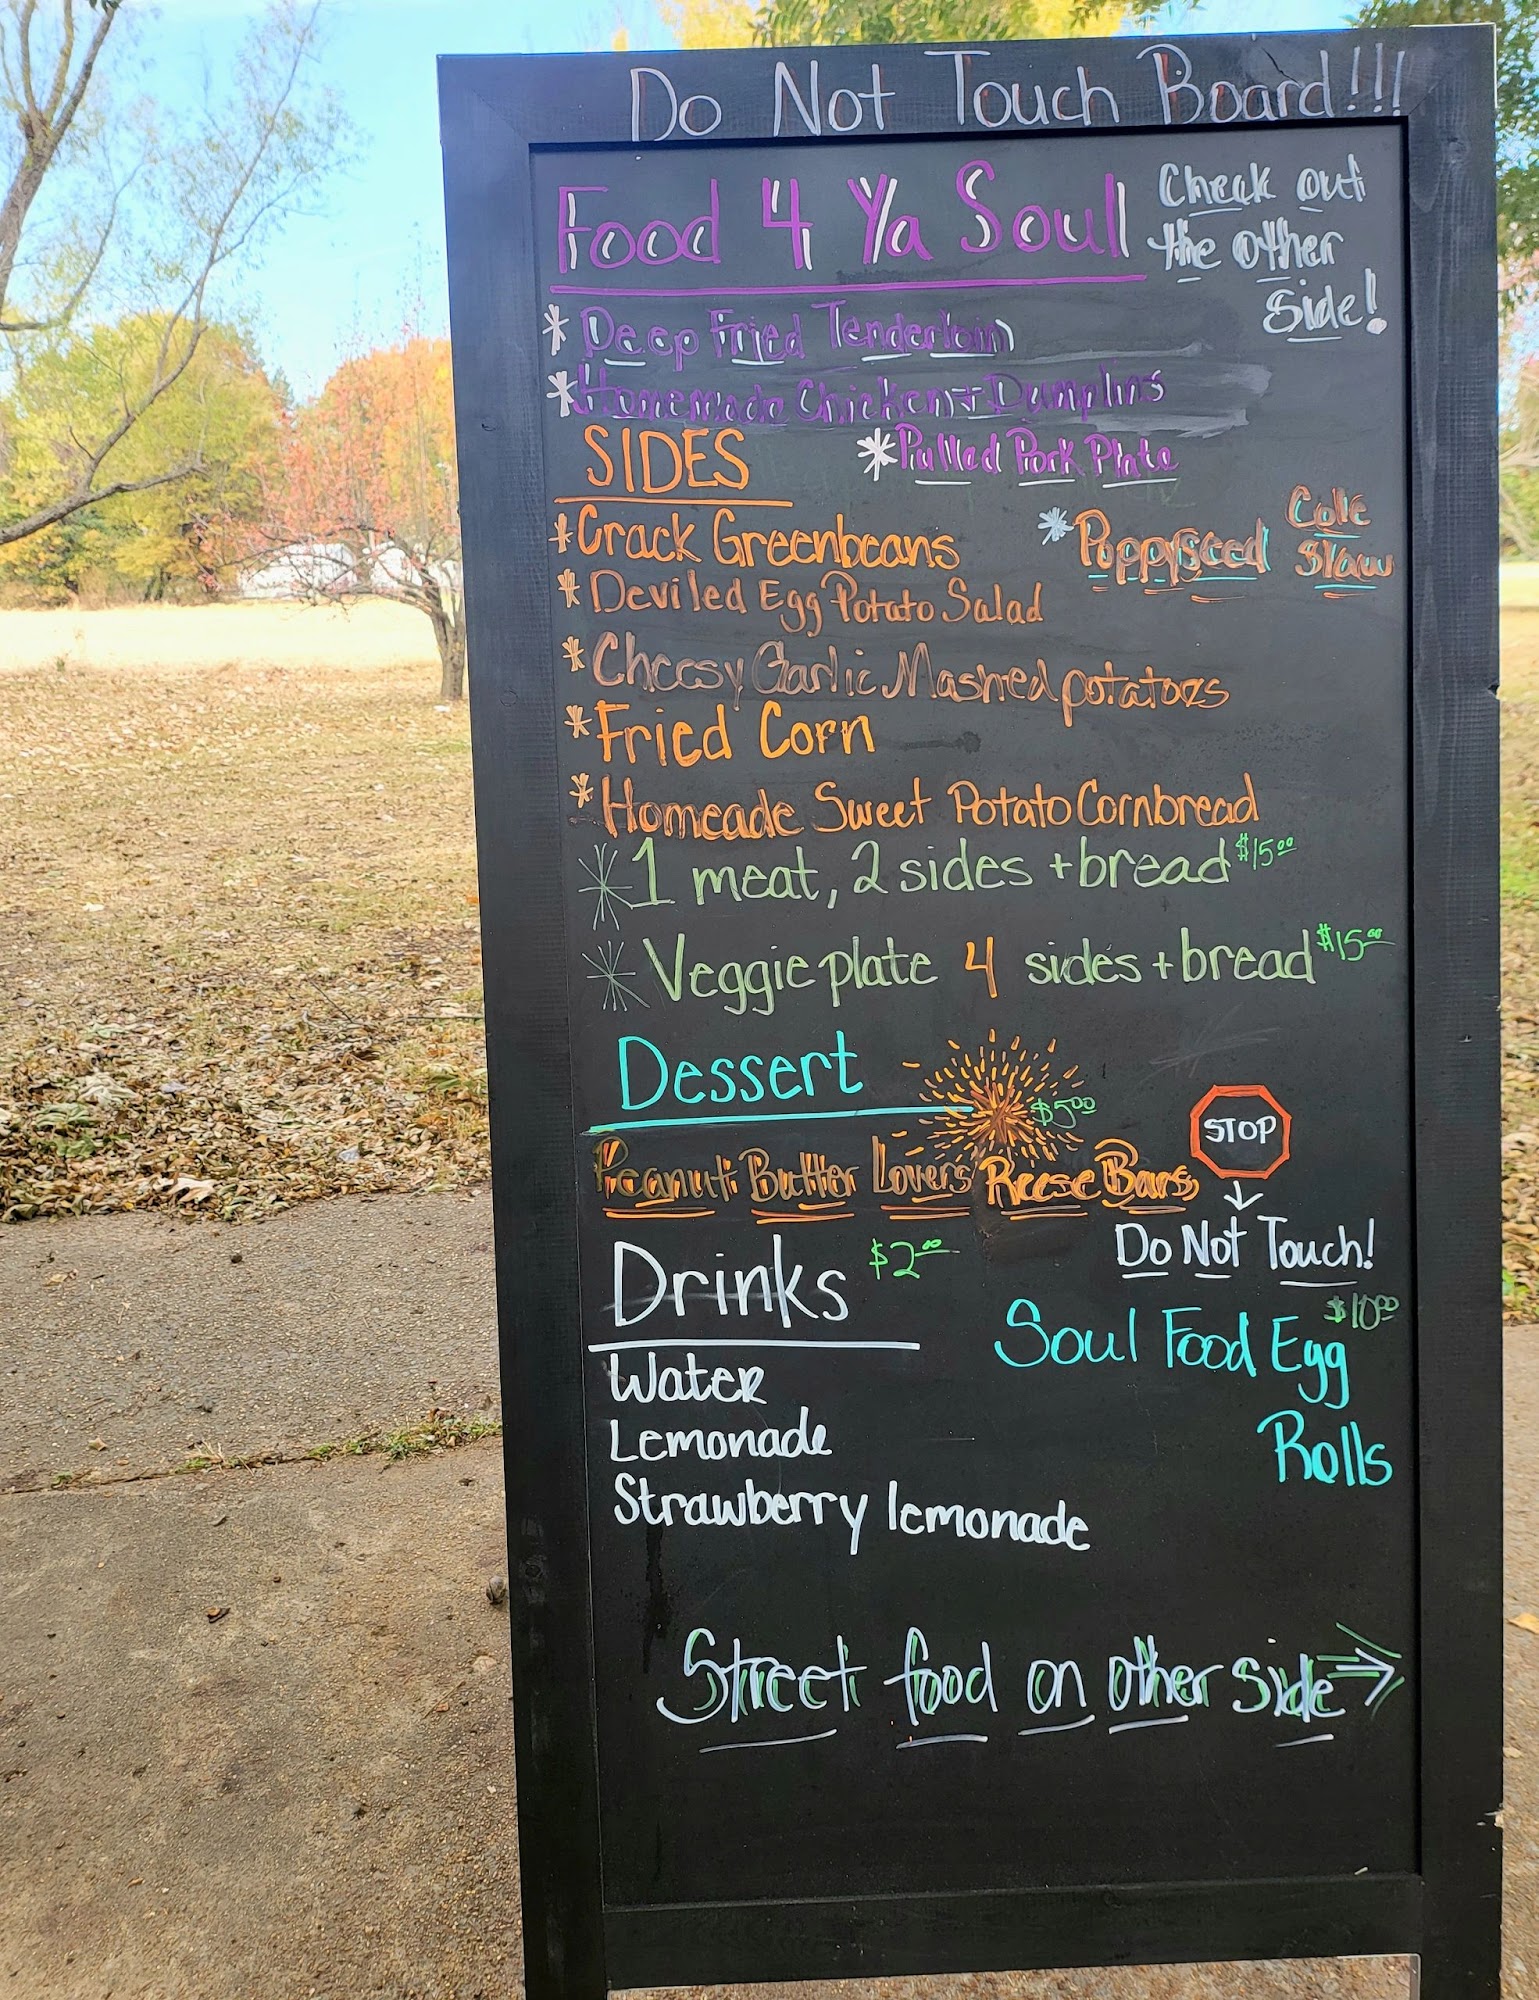 Do Not Touch Board!!!
Food 4 Ya Soul
Check out
the other
side!
* Deep Fried Tenderloin
* Homemade Chicken + Dumplins
* Pulled Pork Plate
SIDES
* Crack Greenbeans
* Poppyseed Cole
Slaw
* Deviled Egg Potato Salad
* Cheesy Garlic Mashed potatoes
* Fried Corn
* Homeade Sweet Potato Cornbread
* 1 meat, 2 sides + bread $15.00
* Veggie plate 4 sides + bread $15.00
Dessert
$5.00
Peanut Butter Lovers Reese Bars
STOP
Do Not Touch!
Drinks $2.00
Water
Lemonade
Strawberry lemonade
Soul Food Egg $10.00
Rolls
Street food on other side →